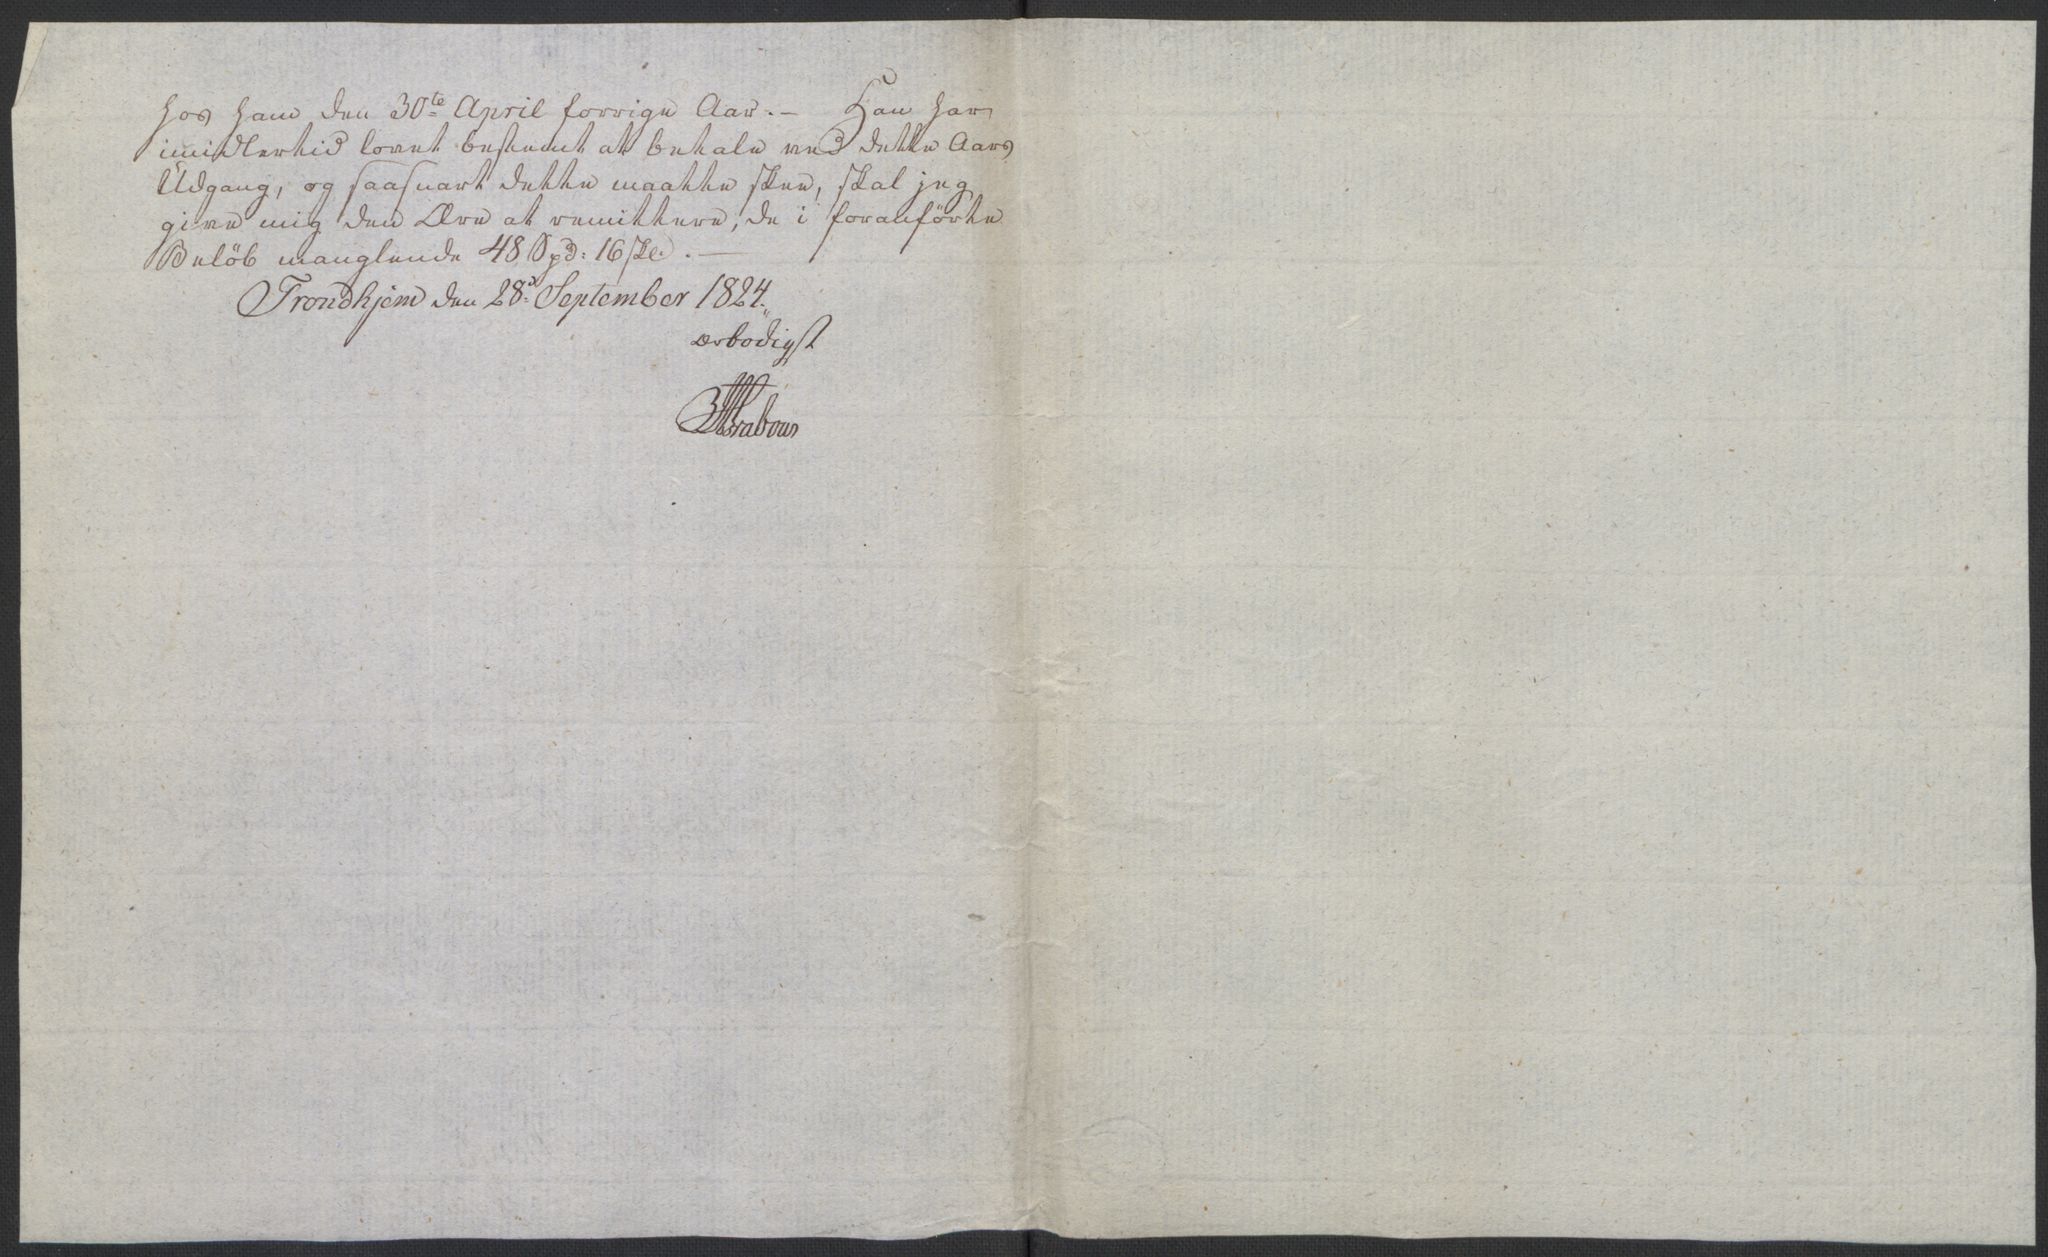 hos ham den 30te April forrige Aar. – Han har
imidlertid lovet bestemt at betale ved dette Aars
Udgang, og saasnart dette maatte skee, skal jeg
give mig den Ære at remittere, de i foranförte
Belöb manglende 48 Spd: 16 sk. –
Trondhjem den 28d September 1824.
ærbödigst